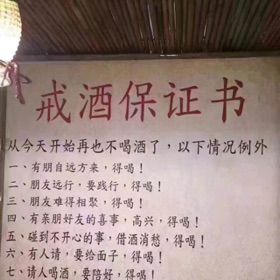 戒酒保证书
从今天开始再也不喝酒了，以下情况例外
一、有朋自远方来，得喝！
二、朋友远行，要践行，得喝！
三、朋友难得相聚，得喝！
四、有亲朋好友的喜事，高兴，得喝！
五、碰到不开心的事，借酒消愁，得喝！
六、有人请，要给面子，得喝！
七、请人喝酒，要陪好，得喝！